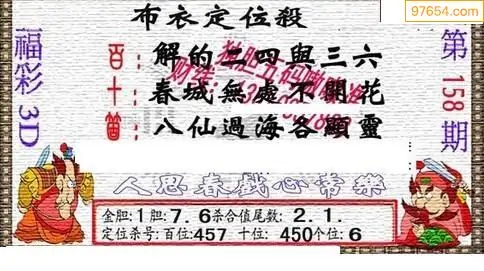 97654.com
布衣定位殺
福彩3D
第158期
百：解的二四與三六
十：春城無處不開花
個：八仙過海各顯靈
人思春戲心常樂
金胆:1胆:7.6杀合值尾数:2.1.
定位杀号:百位:457 十位:450个位:6